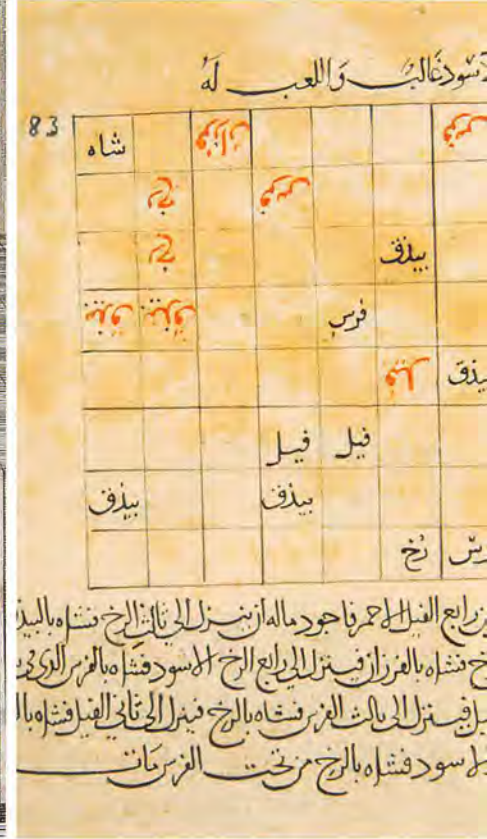 لاسود غالب واللعب له
83
فرس فرزان شاه
فرس رخ
بيذق رخ
فرس بيذق بيذق
يذق فيل
فيل فيل
بيذق بيذق
رس رخ
رابع الفيل الاحمر فاجود ماله ان ينزل الى ثالث الرخ فشاه بالبيذ
خ فشاه بالفرزان فينزل الى رابع الرخ الاسود فشاه بالفرس الذي في
يل فينزل الى ثالث الفرس فشاه بالرخ فينزل الى ثاني الفيل فشاه با
الاسود فشاه بالرخ من تحت الفرس مات